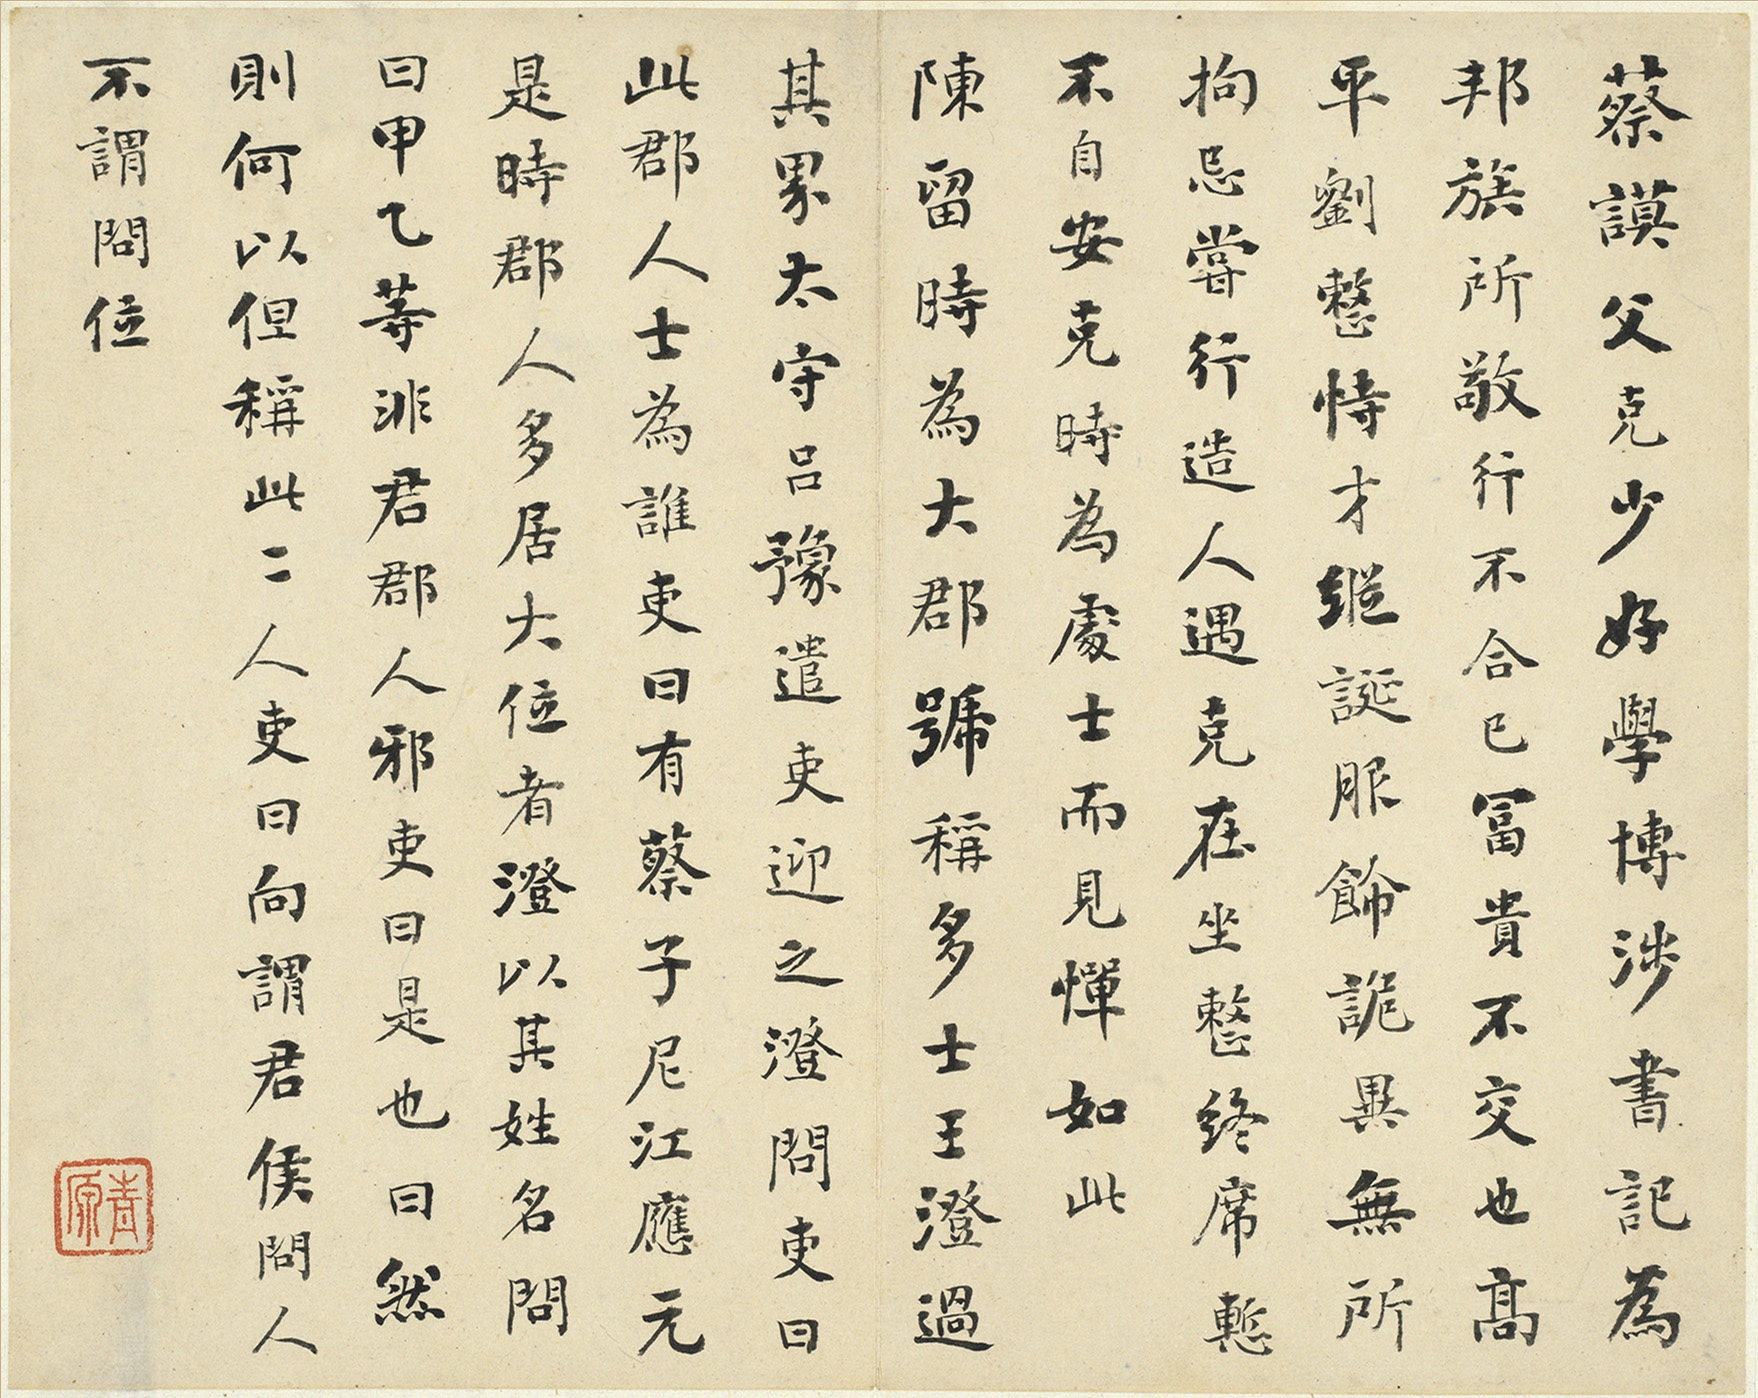 蔡謨父克少好學博涉書記為
邦族所敬行不合已冨貴不交也髙
平劉整恃才縱誕服餙詭異無所
拘忌嘗行造人遇克在坐整終席慙
不自安克時為處士而見憚如此
陳留時為大郡號稱多士王澄過
其界太守呂豫遣吏迎之澄問吏曰
此郡人士為誰吏曰有蔡子尼江應元
是時郡人多居大位者澄以其姓名問
曰甲乙等非君郡人邪吏曰是也曰然
則何以但稱此二人吏曰向謂君侯問人
不謂問位
青原